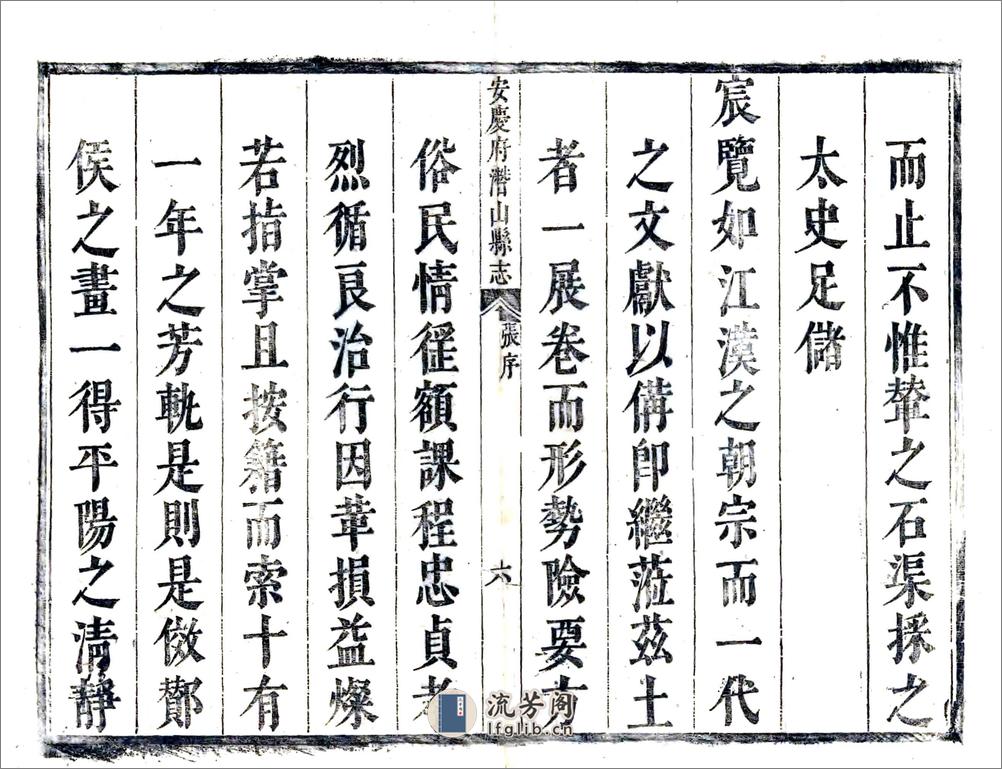 而止不惟輦之石渠採之
太史足儲
宸覽如江漢之朝宗而一代
之文獻以備即繼蒞茲土
者一展卷而形勢險要方
安慶府潛山縣志
張序
六
俗民情徑額課程忠貞考
烈循良治行因革損益燦
若指掌且按籍而索十有
一年之芳軌是則是傚鄭
侯之畫一得平陽之清靜
流芳阁
lfglib.cn